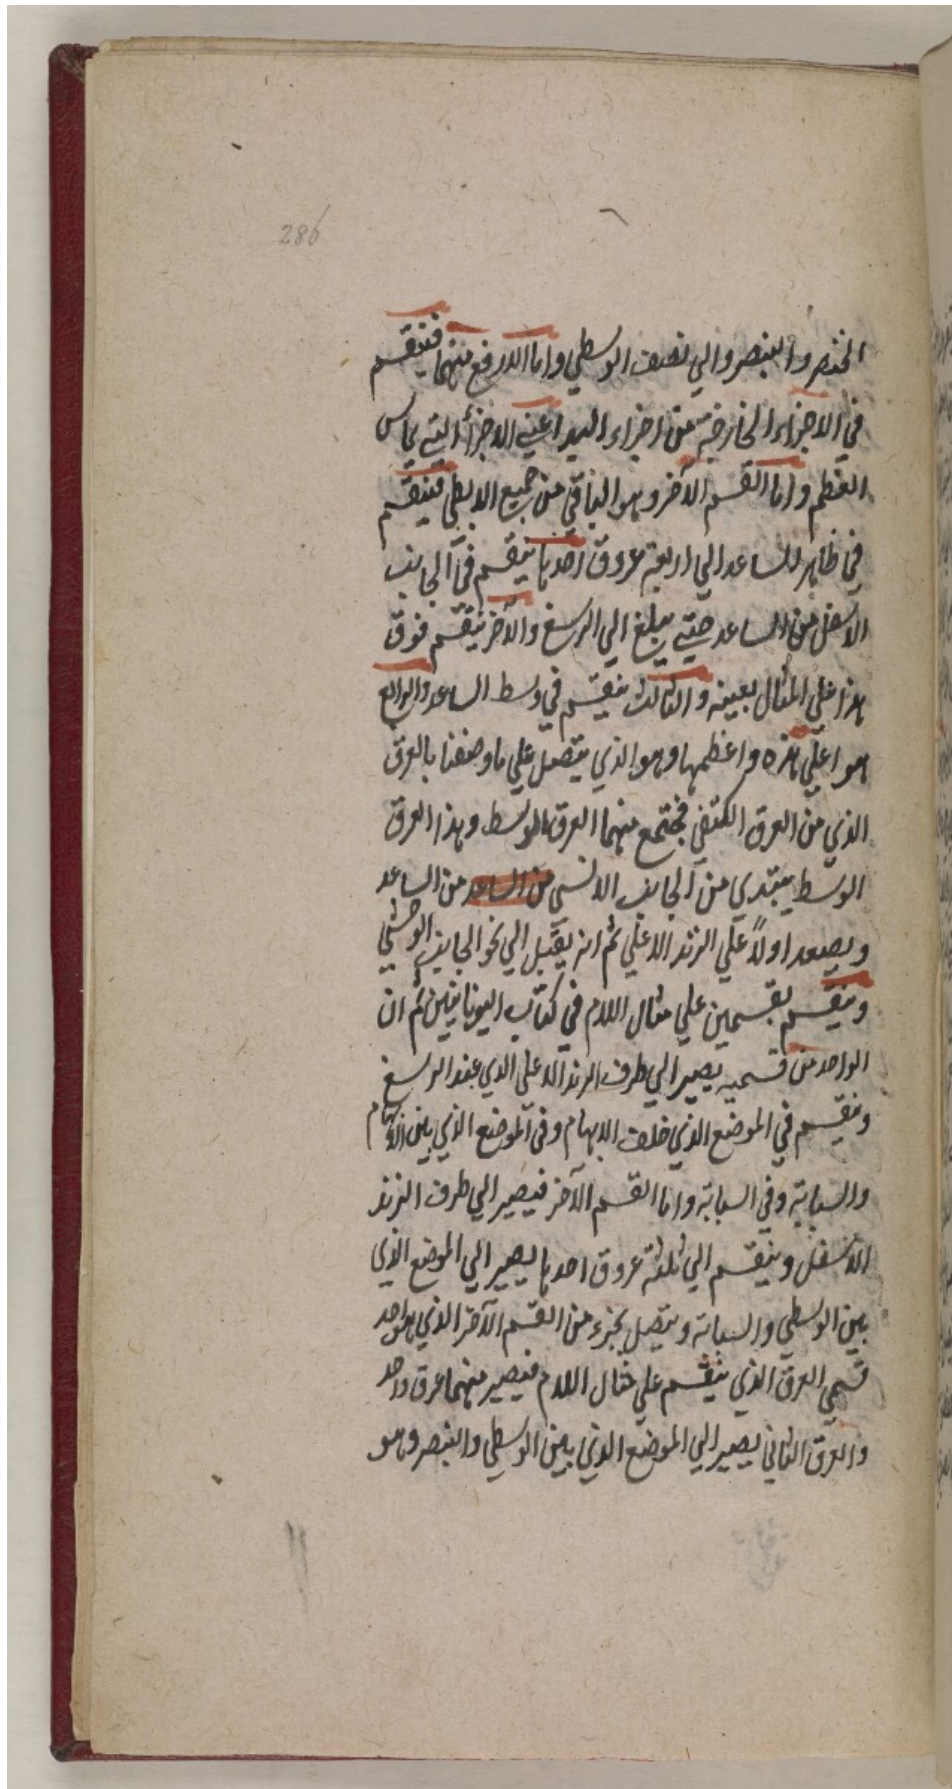 286
الخنصر والبنصر والي نصف الوسطي واما الارفع منهما فينقسم
في الاجزاء الخارجة من اجزاء اليد اعني الاجزاء التي يماس
العظم واما القسم الآخر وهو الباقي من جميع الابطي فينقسم
في ظاهر الساعد الي اربعة عروق احدها ينقسم في الجانب
الاسفل من الساعد حتي يبلغ الي الرسغ والآخر ينقسم فوق
هذا علي المثال بعينه والثالث ينقسم في وسط الساعد والرابع
هو اعلي هذه واعظمها وهو الذي يتصل علي ما وصفنا بالعرق
الذي من العرق الكتفي فيجتمع منهما العرق الوسط وهذا العرق
الوسط يبتدي من الجانب الانسي من الساعد من الساعد
ويصعد اولاً علي الزند الاعلي ثم انه يقبل الي نحو الجانب الوحشي
وينقسم بقسمين علي مثال اللام في كتاب اليونانيين ثم ان
الواحد من قسميه يصير الي طرف الزند الاعلي الذي عند الرسغ
وينقسم في الموضع الذي خلف الابهام وفي الموضع الذي بين الابهام
والسبابة وفي السبابة واما القسم الآخر فيصير الي طرف الزند
الاسفل وينقسم الي ثلثة عروق احدها يصير الي الموضع الذي
بين الوسطي والسبابة ويتصل بجزء من القسم الآخر الذي هو احد
قسمي العرق الذي ينقسم علي مثال اللام فيصير منهما عرق واحد
والعرق الثاني يصير الي الموضع الذي بين الوسطي والبنصر وهو